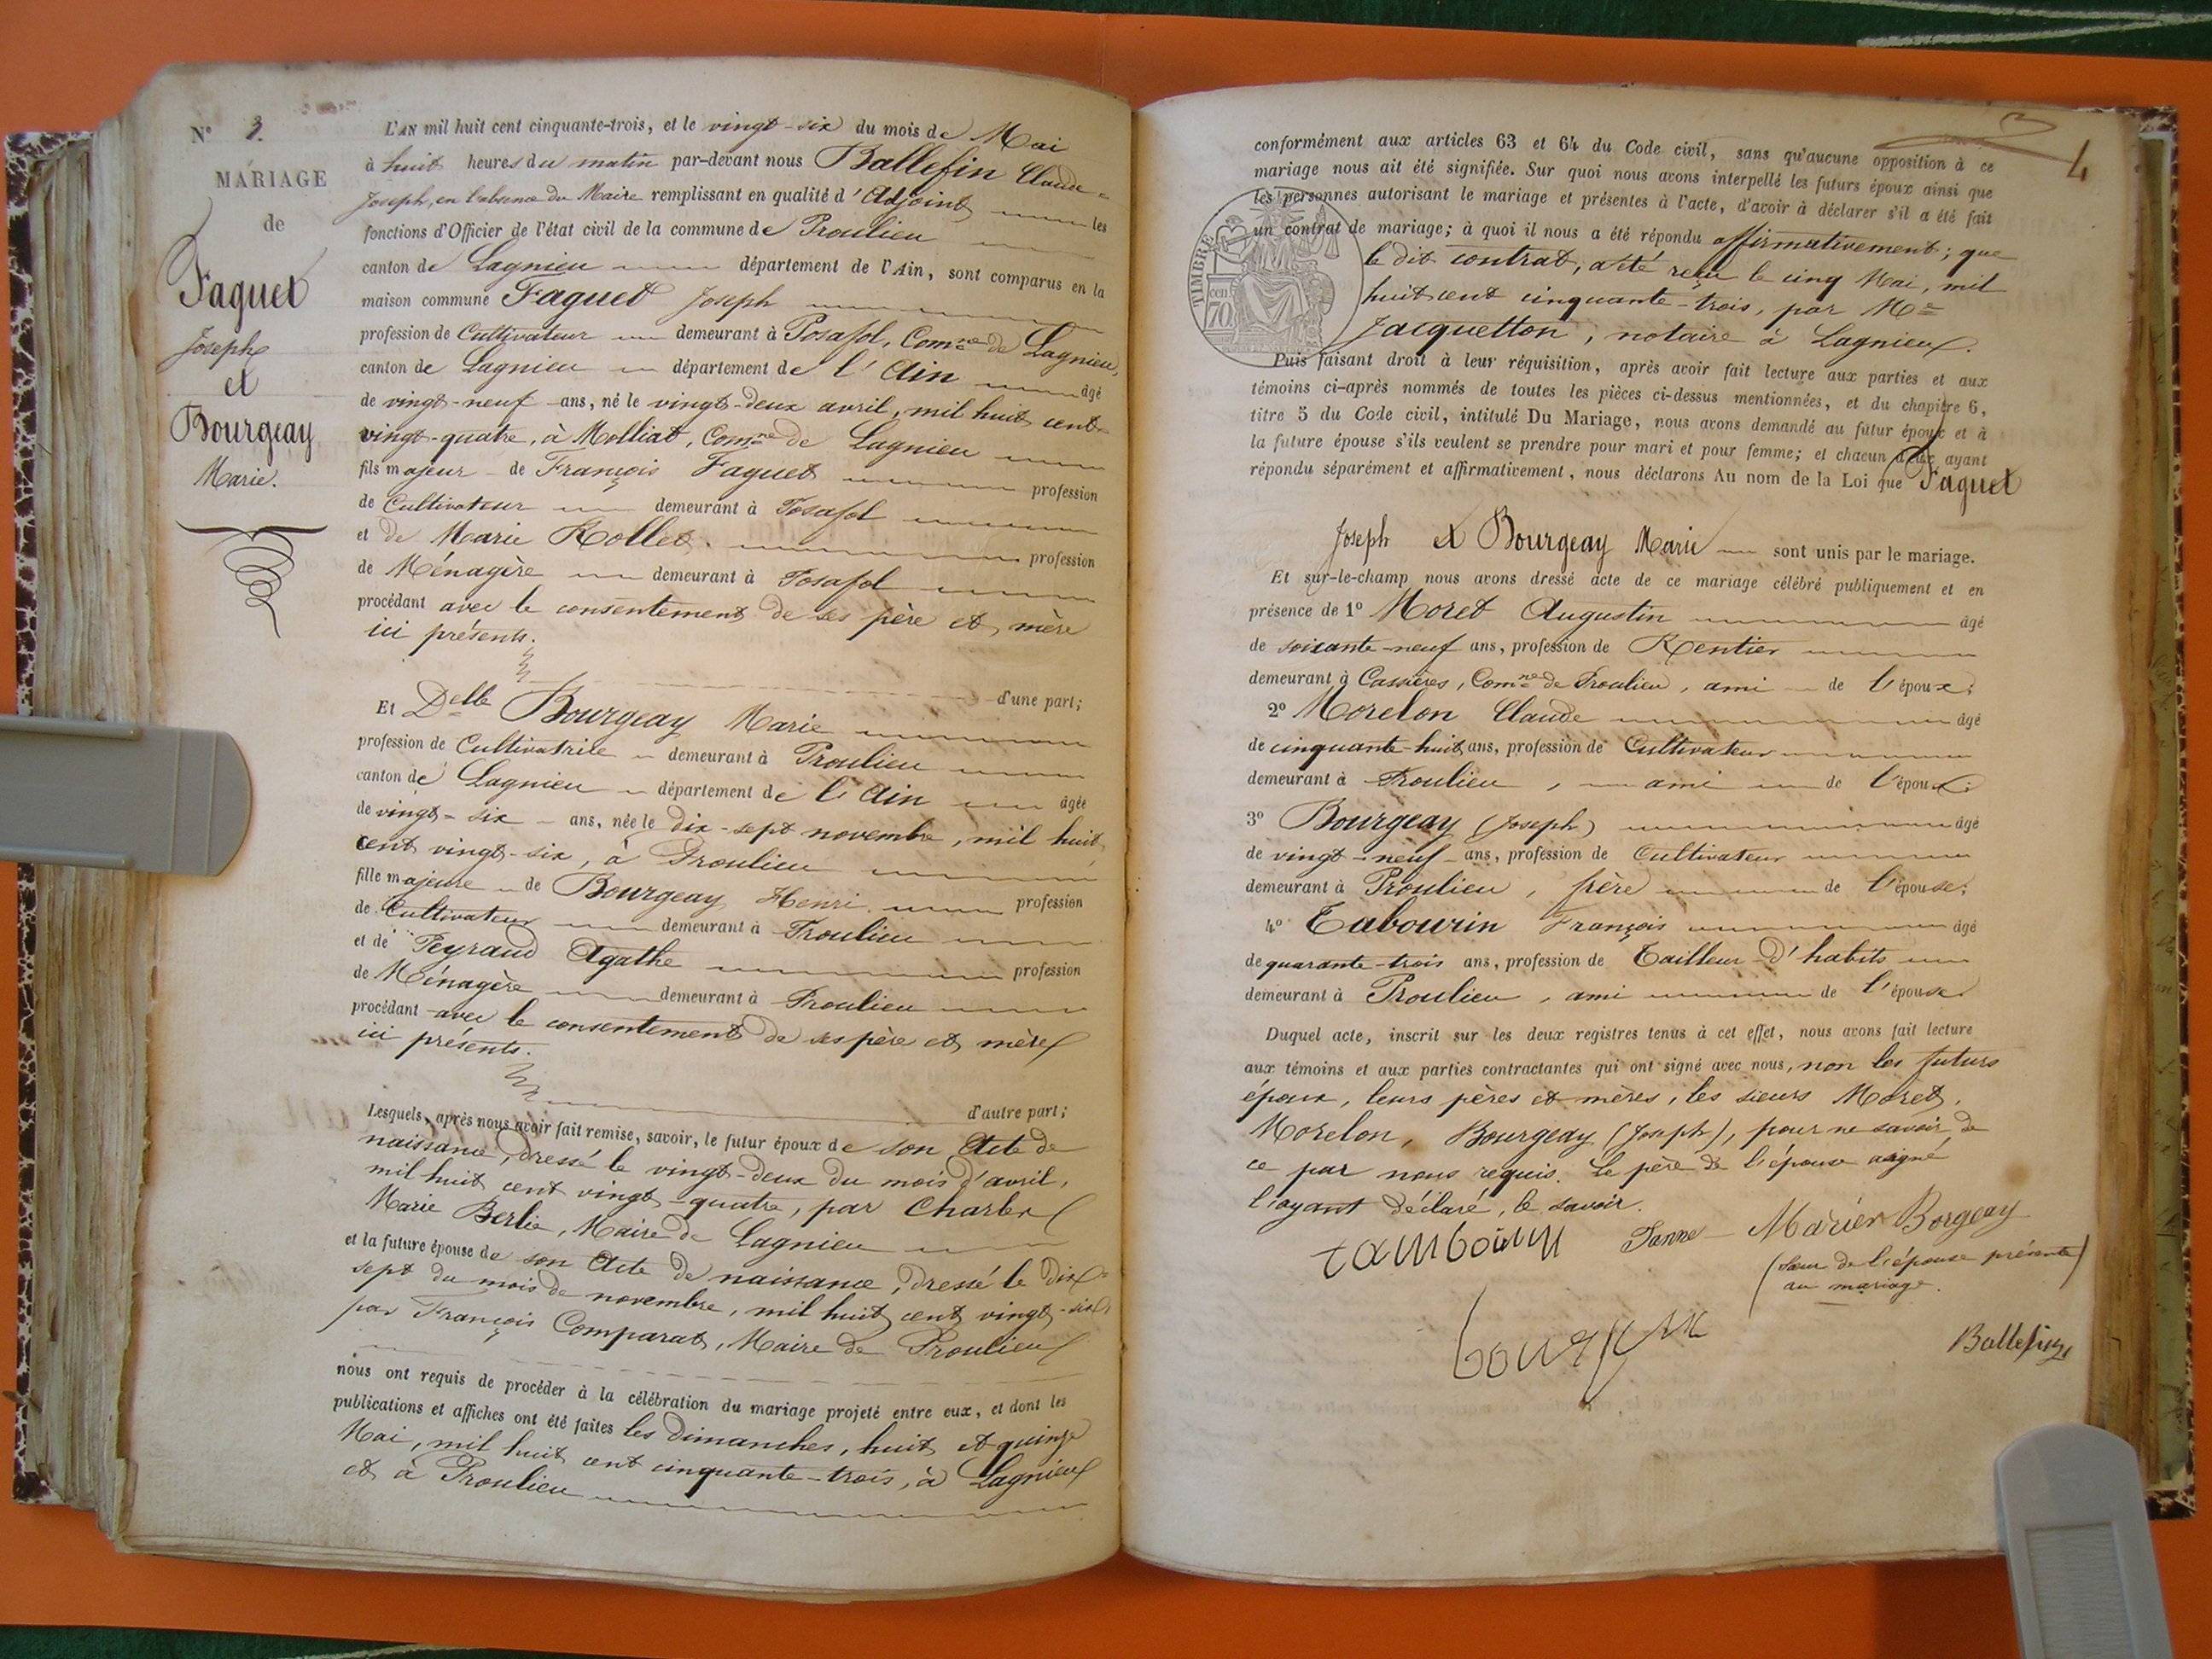 N° 3.
MARIAGE
de
Faguet
Joseph
et
Bourgeay
Marie.
L'AN mil huit cent cinquante-trois, et le vingt-six du mois de Mai
à huit heures du matin par-devant nous Ballefin Claude-
Joseph, en l'absence du Maire remplissant en qualité d'Adjoint les
fonctions d'Officier de l'état civil de la commune de Proulieu
canton de Lagnieu département de l'Ain, sont comparus en la
maison commune Faguet Joseph
profession de Cultivateur demeurant à Posafol, Comne de Lagnieu,
canton de Lagnieu département de l'Ain âgé
de vingt-neuf ans, né le vingt-deux avril, mil huit cent
vingt-quatre, à Molliat, Comne de Lagnieu
fils majeur de François Faguet profession
de Cultivateur demeurant à Posafol
et de Marie Rollet. profession
de Ménagère demeurant à Posafol
procédant avec le consentement de ses père et mère
ici présents.
d'une part;
Et Delle Bourgeay Marie
profession de Cultivatrice demeurant à Proulieu
canton de Lagnieu département de l'Ain âgée
de vingt-six ans, née le dix-sept novembre, mil huit
cent vingt-six, à Proulieu
fille majeure de Bourgeay Henri profession
de Cultivateur demeurant à Proulieu
et de Peyraud Agathe profession
de Ménagère demeurant à Proulieu
procédant avec le consentement de ses père et mère
ici présents.
d'autre part;
Lesquels, après nous avoir fait remise, savoir, le futur époux de son Acte de
naissance, dressé le vingt-deux du mois d'avril,
mil huit cent vingt-quatre, par Charles
Marie Berlie, Maire de Lagnieu
et la future épouse de son Acte de naissance, dressé le dix-
sept du mois de novembre, mil huit cent vingt-six,
par François Comparat, Maire de Proulieu
nous ont requis de procéder à la célébration du mariage projeté entre eux, et dont les
publications et affiches ont été faites les dimanches, huit et quinze
Mai, mil huit cent cinquante-trois, à Lagnieu
et à Proulieu
4
conformément aux articles 63 et 64 du Code civil, sans qu'aucune opposition à ce
mariage nous ait été signifiée. Sur quoi nous avons interpellé les futurs époux ainsi que
les personnes autorisant le mariage et présentes à l'acte, d'avoir à déclarer s'il a été fait
un contrat de mariage; à quoi il nous a été répondu affirmativement; que
le dit contrat, a été reçu le cinq Mai, mil
huit cent cinquante-trois, par Me
Jacquetton, notaire à Lagnieu.
TIMBRE
cen. 70
Puis faisant droit à leur réquisition, après avoir fait lecture aux parties et aux
témoins ci-après nommés de toutes les pièces ci-dessus mentionnées, et du chapitre 6,
titre 5 du Code civil, intitulé Du Mariage, nous avons demandé au futur époux et à
la future épouse s'ils veulent se prendre pour mari et pour femme; et chacun d'eux ayant
répondu séparément et affirmativement, nous déclarons Au nom de la Loi que Faguet
Joseph et Bourgeay Marie sont unis par le mariage.
Et sur-le-champ nous avons dressé acte de ce mariage célébré publiquement et en
présence de 1° Moret Augustin âgé
de soixante-neuf ans, profession de Rentier
demeurant à Cassières, Comne de Proulieu, ami de l'époux;
2° Morelon Claude âgé
de cinquante-huit ans, profession de Cultivateur
demeurant à Proulieu, ami de l'époux;
3° Bourgeay (Joseph) âgé
de vingt-neuf ans, profession de Cultivateur
demeurant à Proulieu, frère de l'épouse;
4° Tabourin François âgé
de quarante-trois ans, profession de Tailleur d'habits
demeurant à Proulieu, ami de l'épouse
Duquel acte, inscrit sur les deux registres tenus à cet effet, nous avons fait lecture
aux témoins et aux parties contractantes qui ont signé avec nous, non les futurs
époux, leurs pères et mères, les sieurs Moret,
Morelon, Bourgeay (Joseph), pour ne savoir, de
ce par nous requis. Le père de l'épouse a signé
l'ayant déclaré, le savoir.
Marier Borgeay
(Sœur de l'épouse présente
au mariage.)
Ballefin